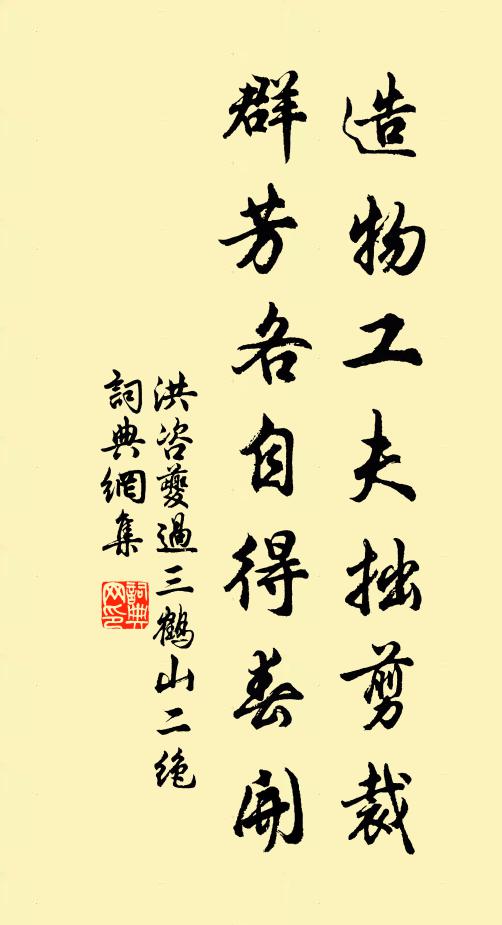 造物工夫拙剪裁
群芳各自得春開
洪咨夔過三鶴山二絶
詞典網集
詞典網印